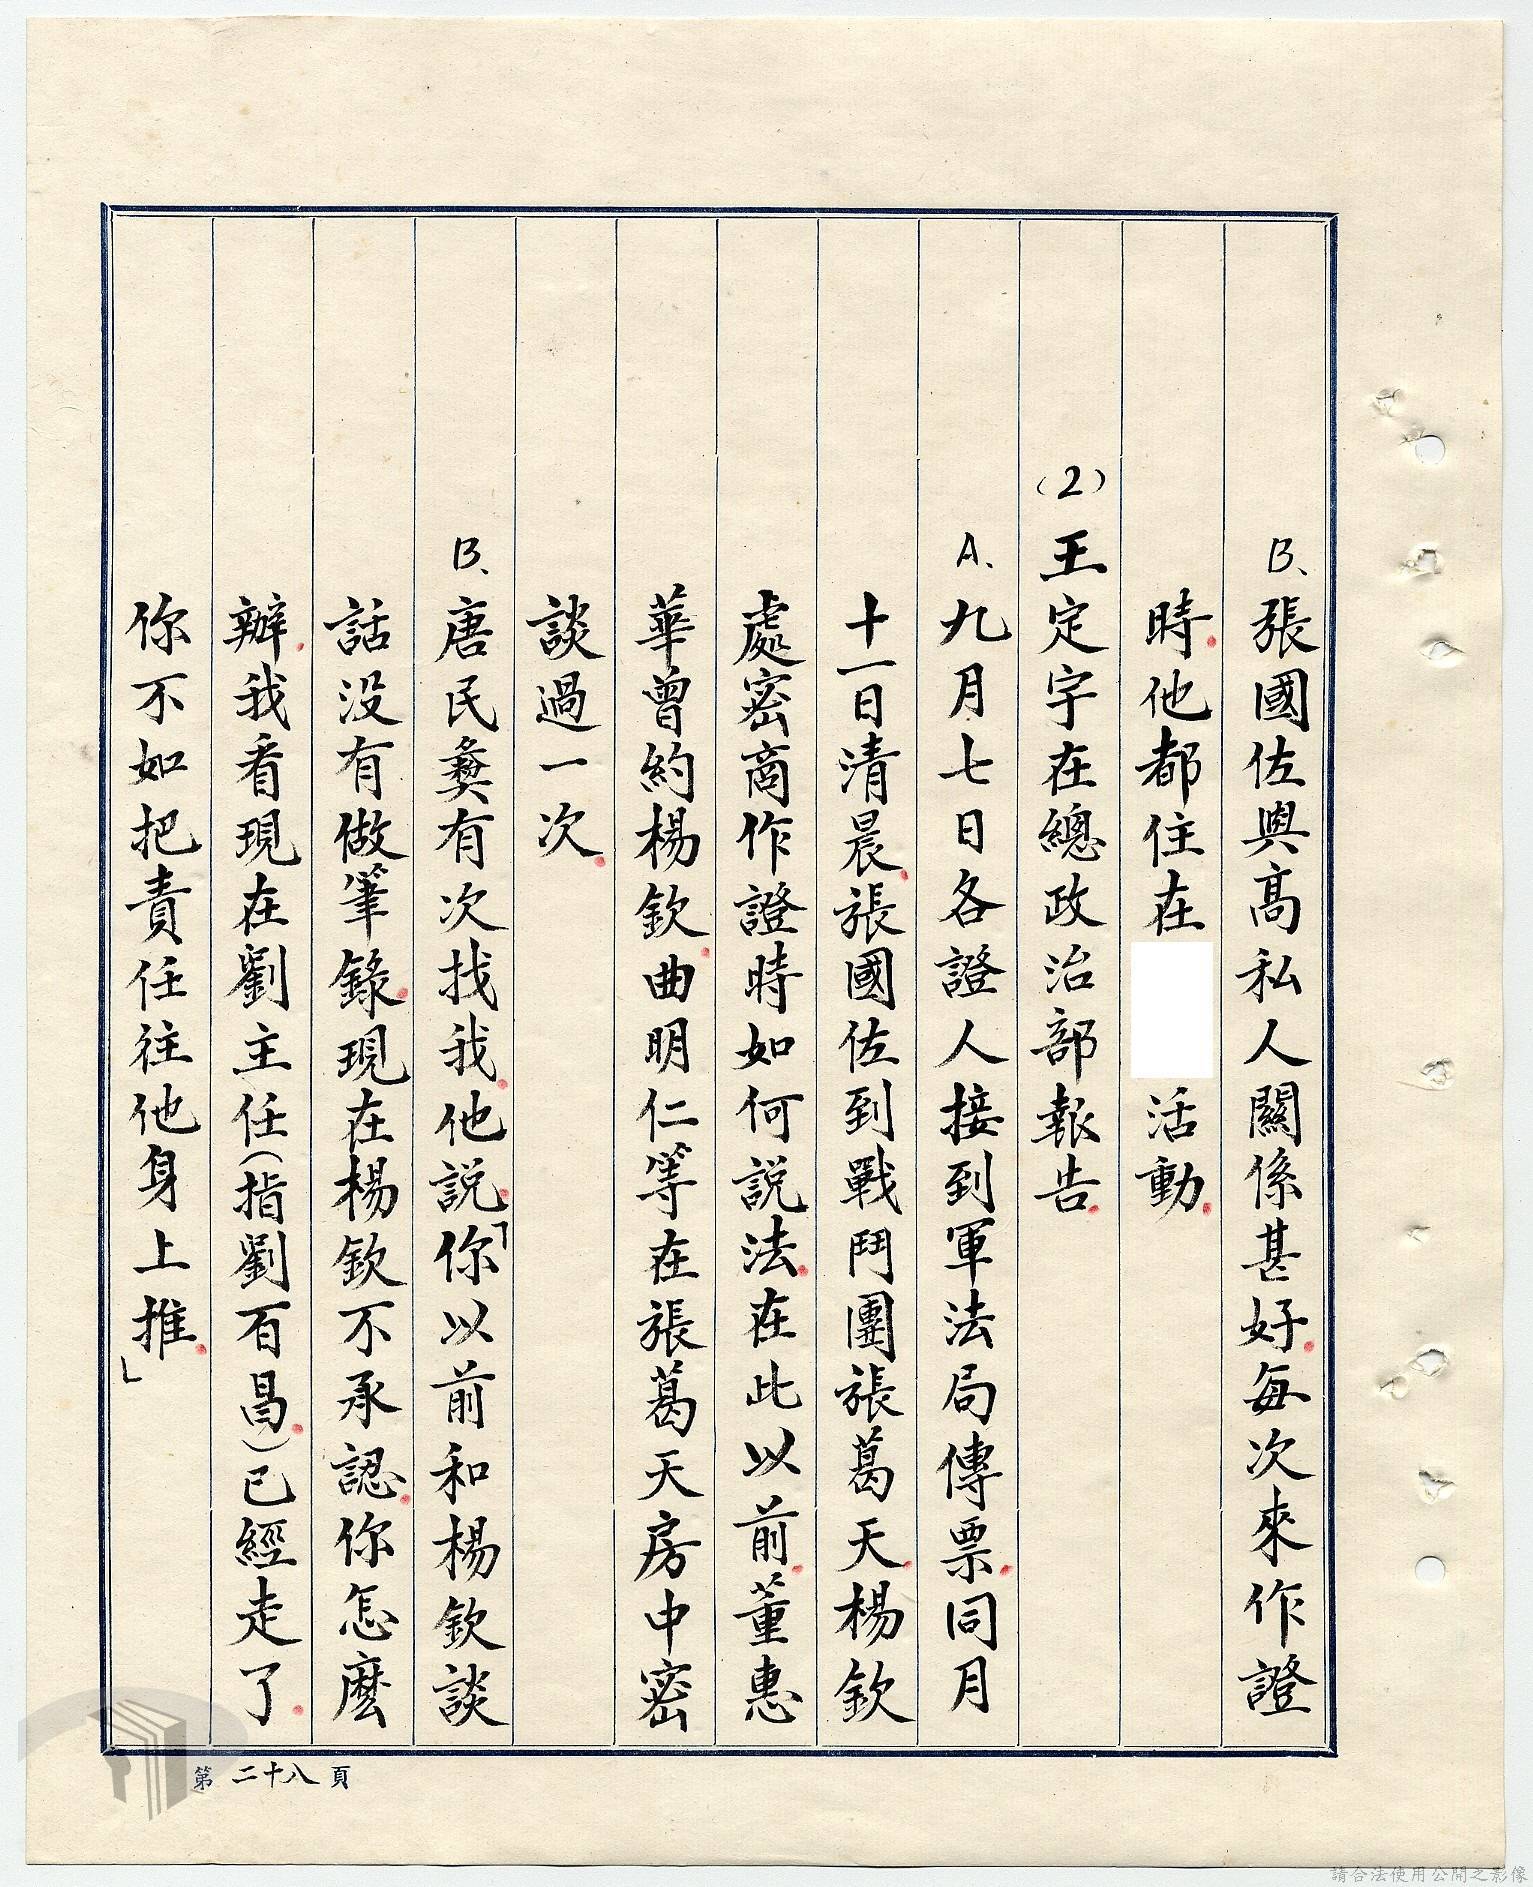 B、張國佐與高私人關係甚好.每次來作證
時.他都住在　　活動.
(2)王定宇在總政治部報告.
A、九月七日各證人接到軍法局傳票.同月
十一日清晨.張國佐到戰鬥團張葛天.楊欽
處密商作證時如何說法.在此以前.董惠
華曾約楊欽.曲明仁等在張葛天房中密
談過一次.
B、唐民彝有次找我.他說.「你以前和楊欽談
話没有做筆錄.現在楊欽不承認.你怎麼
辦.我看現在劉主任(指劉百昌.)已經走了.
你不如把責任往他身上推.」
第 二十八 頁
請合法使用公開之影像